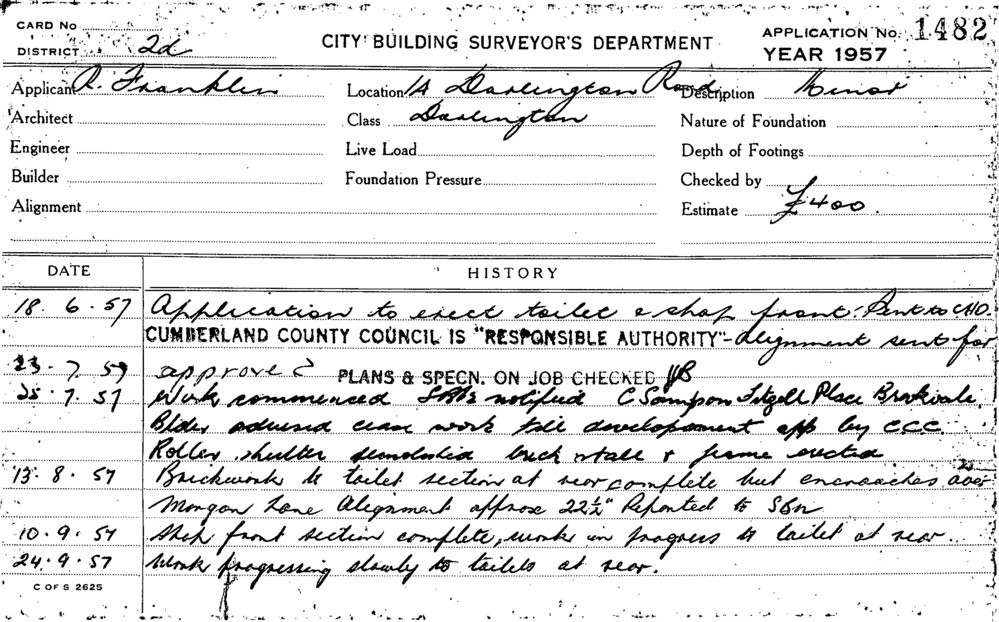 CARD No
DISTRICT 2d
CITY BUILDING SURVEYOR'S DEPARTMENT
APPLICATION No. 1482
YEAR 1957
Applicant R. Franklin Location Darlington Road, Description Minor
Architect Class Darlington Nature of Foundation
Engineer Live Load Depth of Footings
Builder Foundation Pressure Checked by
Alignment Estimate £400.
DATE HISTORY
18.6.57 Application to erect toilet & shop front. Sent to CHO.
CUMBERLAND COUNTY COUNCIL IS "RESPONSIBLE AUTHORITY" - Alignment sent for
23.7.57 approved PLANS & SPECN. ON JOB CHECKED
25.7.57 Work commenced notified C Sampson Place Brookvale.
Blder advised cease work till development app by C.C.C.
Roller shutter brick stall & frame erected
13.8.57 Brickwork to toilet section at rear complete but encroaches over
Morgan Lane Alignment approx 22½" Reported to
10.9.57 Shop front section complete, work in progress to toilet at rear.
24.9.57 Work progressing slowly to toilets at rear.
C OF S 2625